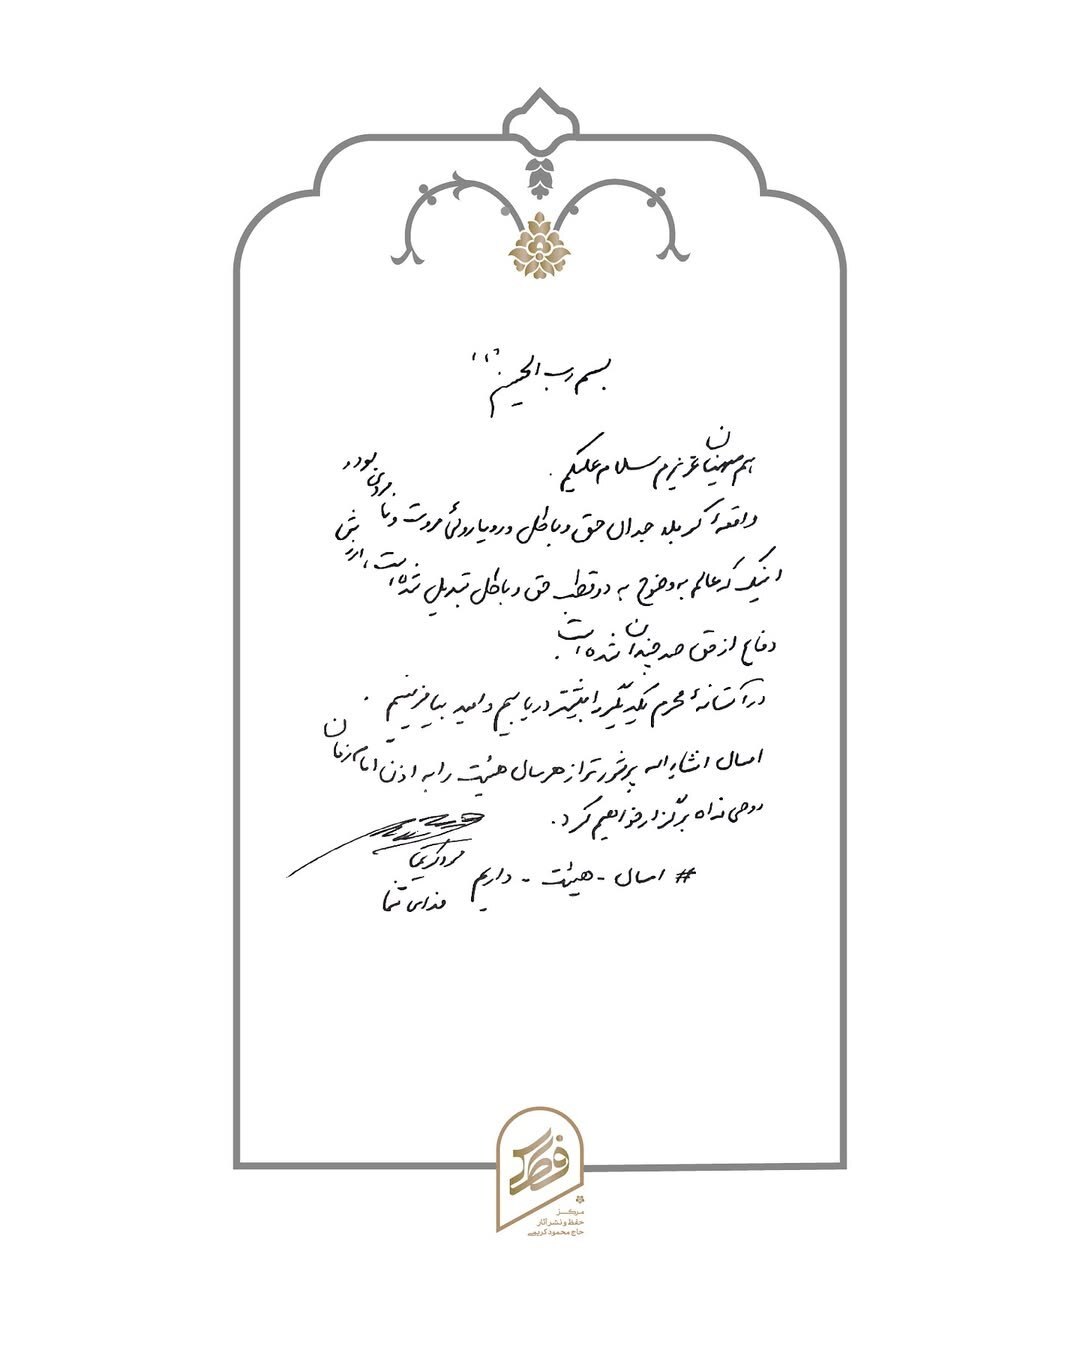 بسم رب الحسین
هم‌میهنان عزیزم سلام علیکم.
واقعهٔ کربلا جدال حق و باطل و رویاروئی مروت و نامردی بود و
اینک که عالم به وضوح به دو قطب حق و باطل تبدیل شده است، ارزش
دفاع از حق صد چندان شده است.
در آستانهٔ محرم یکدیگر را بیشتر دریابیم و امید بیافرینیم.
امسال انشاءالله پرشورتر از هر سال هیئت را به اذن امام زمان
روحی فداه برگزار خواهیم کرد.
# امسال - هیئت - داریم
فدای شما
فطرس
مرکز
حفظ و نشر آثار
حاج محمود کریمی